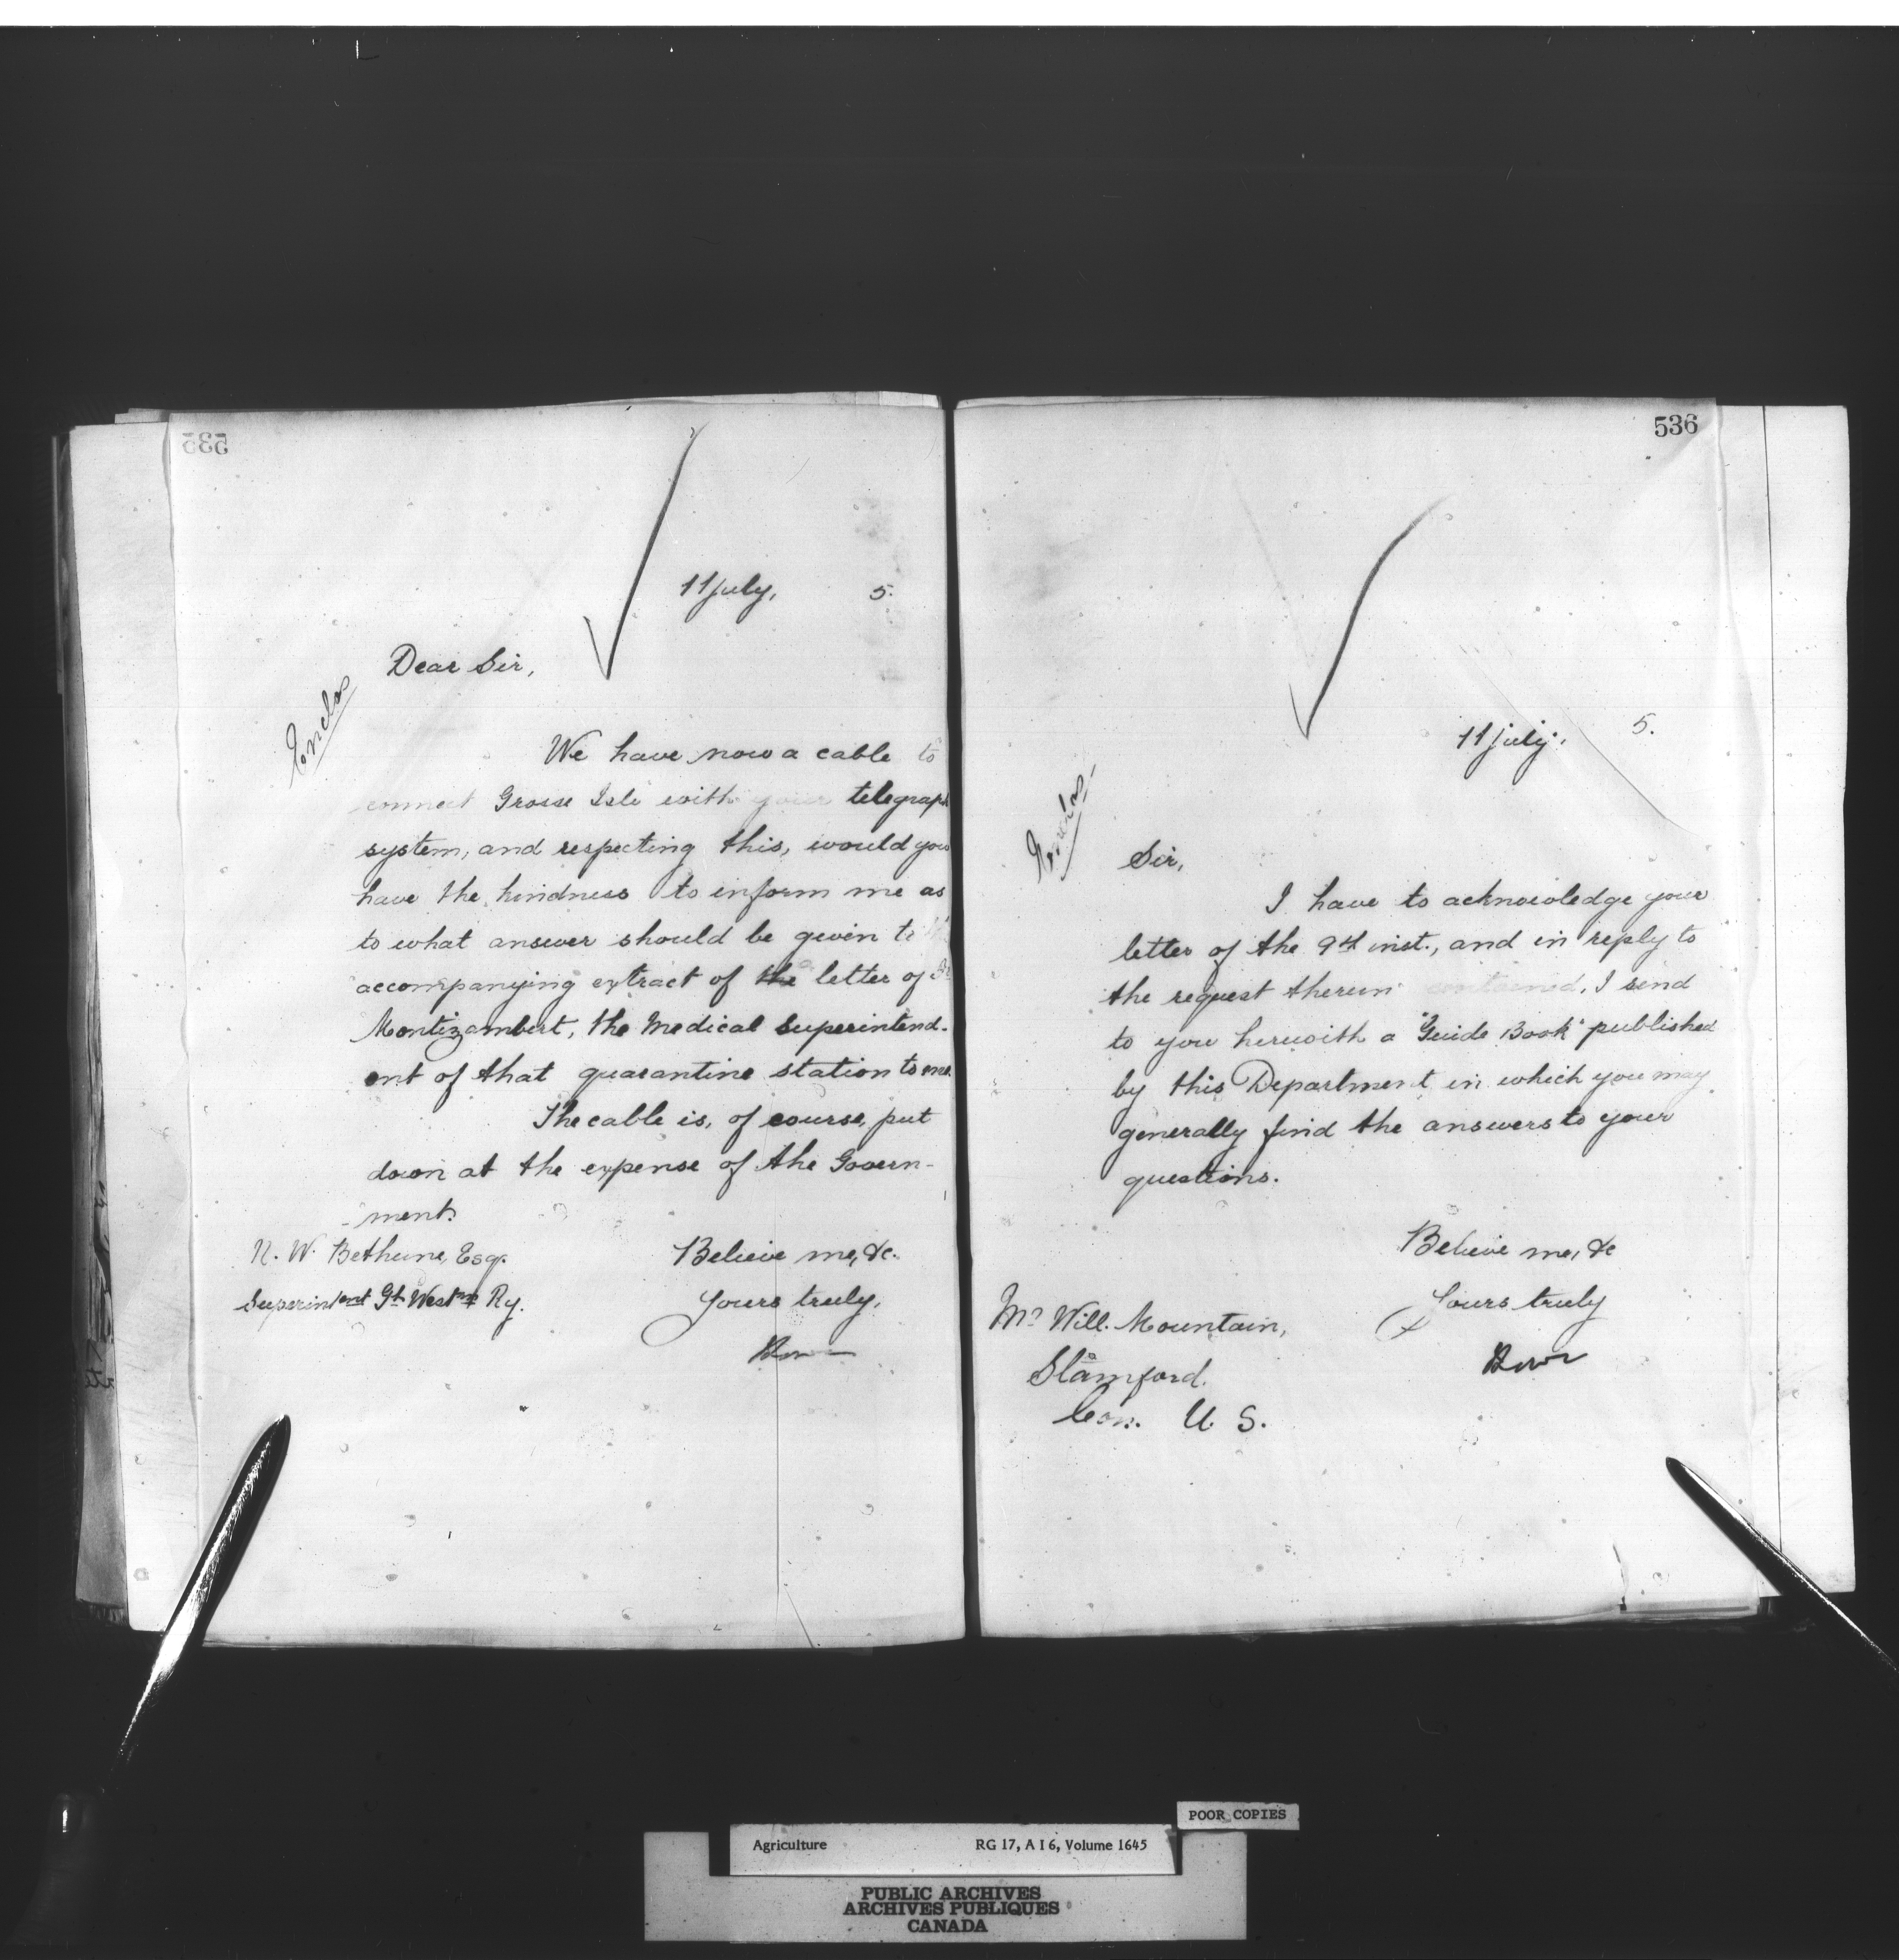 535
11 July, 5.
Dear Sir,
Enclos
We have now a cable to
connect Grosse Isle with your telegraph
system, and respecting this, would you
have the kindness to inform me as
to what answer should be given to
accompanying extract of the letter of Dr
Montizambert, the Medical Superintend-
ent of that quarantine station to me.
The cable is, of course, put
down at the expense of the Govern-
-ment.
N. W. Bethune, Esq.
Superintent Gt Westn Ry.
Believe me, &c.
Yours truly,
536
11 July, 5.
Enclos-
Sir,
I have to acknowledge your
letter of the 9th inst., and in reply to
the request therein contained, I send
to you herewith a "Guide Book" published
by this Department in which you may
generally find the answers to your
questions.
Believe me, &c
Yours truly
Mr Will. Mountain,
Stamford.
Con. U. S.
POOR COPIES
Agriculture RG 17, A I 6, Volume 1645
PUBLIC ARCHIVES
ARCHIVES PUBLIQUES
CANADA